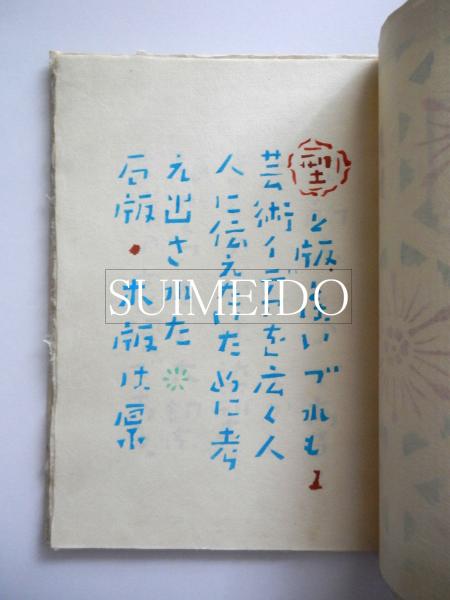 型と版はいづれも
芸術イ品を広く人
人に伝えたいために考
え出された
石版・木版は原
1
SUIMEIDO